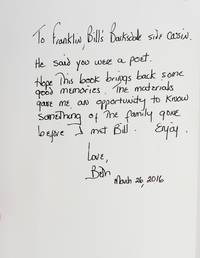 To Franklin, Bill's Barksdale side cousin.
He said you were a poet.
Hope This book brings back some
good memories. The materials
gave me an opportunity to know
something of the family gone
before I met Bill. Enjoy.
Love,
Beth
March 26, 2016